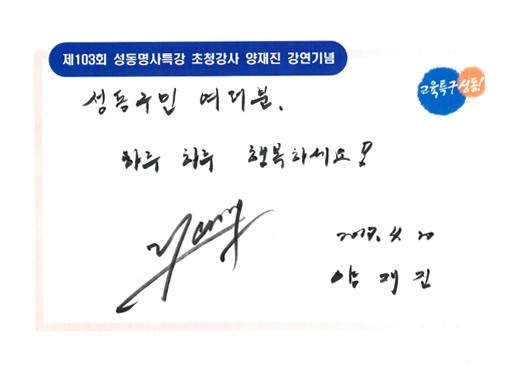 제103회 성동명사특강 초청강사 양재진 강연기념
교육특구 성동!
성동구민 여러분.
하루 하루 행복하세요!
2017. 4. 20
양 재 진